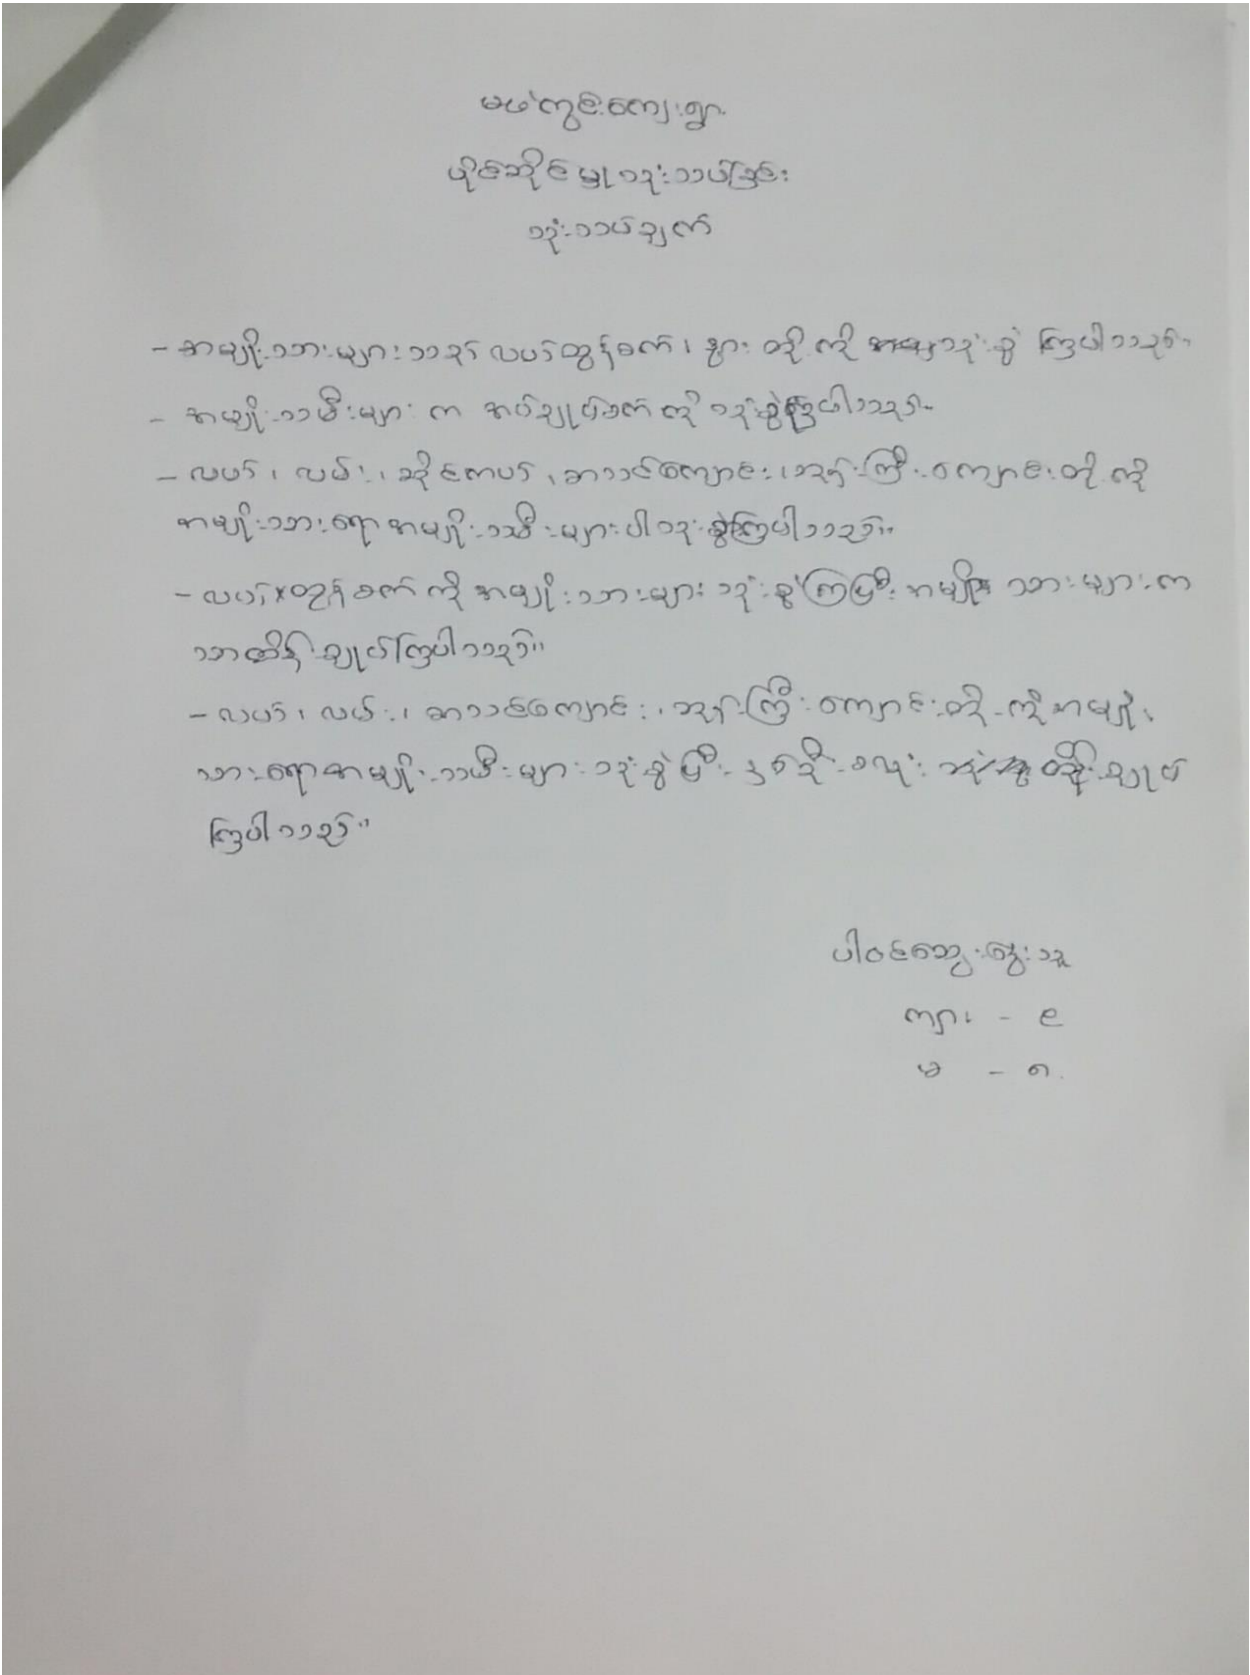 မဖဲကွင်းကျေးရွာ
ပိုင်ဆိုင်မှု သုံးသပ်ခြင်း
သုံးသပ်ချက်
- အမျိုးသားများသည် လယ်ထွန်စက်၊ နွား တို့ကို သုံးစွဲ ကြပါသည်။
- အမျိုးသမီးများ က အပ်ချုပ်စက် ကို သုံးစွဲကြပါသည်။
- လယ်၊ လမ်း၊ ဆိုင်ကယ်၊ စာသင်ကျောင်း၊ ဘုန်းကြီးကျောင်းတို့ ကို
အမျိုးသားရော အမျိုးသမီးများပါ သုံးစွဲကြပါသည်။
- လယ်ထွန်စက် ကို အမျိုးသားများ သုံးစွဲကြပြီး အမျိုး သားများက
ဘဲထိန်းချုပ်ကြပါသည်။
- လယ်၊ လမ်း၊ စာသင်ကျောင်း၊ ဘုန်းကြီးကျောင်းတို့ ကို အမျိုး
သားရော အမျိုးသမီးများ သုံးစွဲပြီး နှစ်ဦးစလုံး ထိန်းချုပ်
ကြပါသည်။
ပါဝင်ဆွေးနွေးသူ
ကျား - ၉
မ - ၈